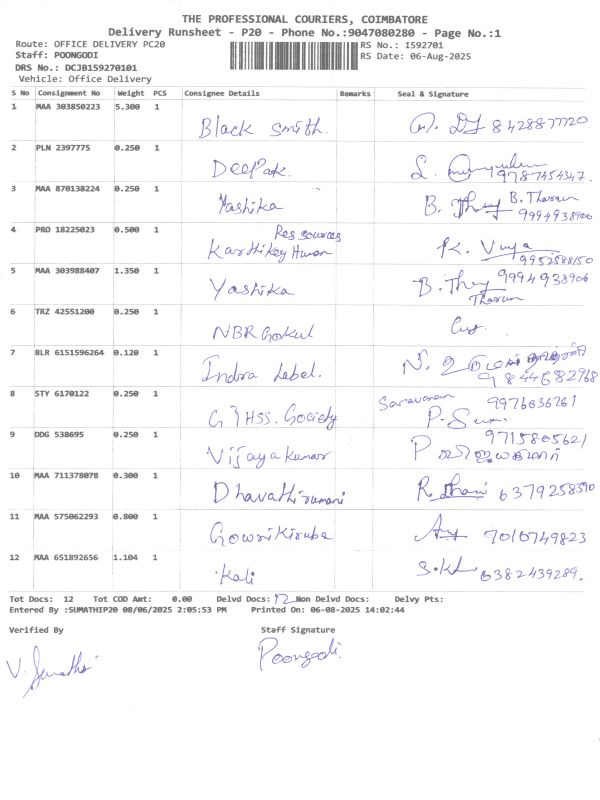 THE PROFESSIONAL COURIERS, COIMBATORE
Delivery Runsheet - P20 - Phone No.:9047080280 - Page No.:1
Route: OFFICE DELIVERY PC20 RS No.: 1592701
Staff: POONGODI RS Date: 06-Aug-2025
DRS No.: DCJB159270101
Vehicle: Office Delivery
S No Consignment No Weight PCS Consignee Details Remarks Seal & Signature
1 MAA 303850223 5.300 1 Black Smith. 8428877720
2 PLN 2397775 0.250 1 Deepak. 9787454347.
3 MAA 870138224 0.250 1 Yashika B. Tharun
9994938906
4 PRO 18225023 0.500 1 Resources
Karthikey Human K. Vijaya
9952588150
5 MAA 303988407 1.350 1 Yashika 9994938906
Tharun
6 TRZ 42551200 0.250 1 NBR Gokul
7 BLR 6151596264 0.120 1 Indra Label.
9844682968
8 STY 6170122 0.250 1 G HSS. Society Saravanan 9976636761
9 DDG 538695 0.250 1 Vijayakumar 9715805621
P விஜயகுமார்
10 MAA 711378078 0.300 1 R. 6379258390
11 MAA 575062293 0.800 1 Gowri Kiruba 7010749823
12 MAA 651892656 1.104 1 Kali 6382439289.
Tot Docs: 12 Tot COD Amt: 0.00 Delvd Docs: 12 Non Delvd Docs: Delvy Pts:
Entered By :SUMATHIP20 08/06/2025 2:05:53 PM Printed On: 06-08-2025 14:02:44
Verified By Staff Signature
V. Sumathi Poongodi.